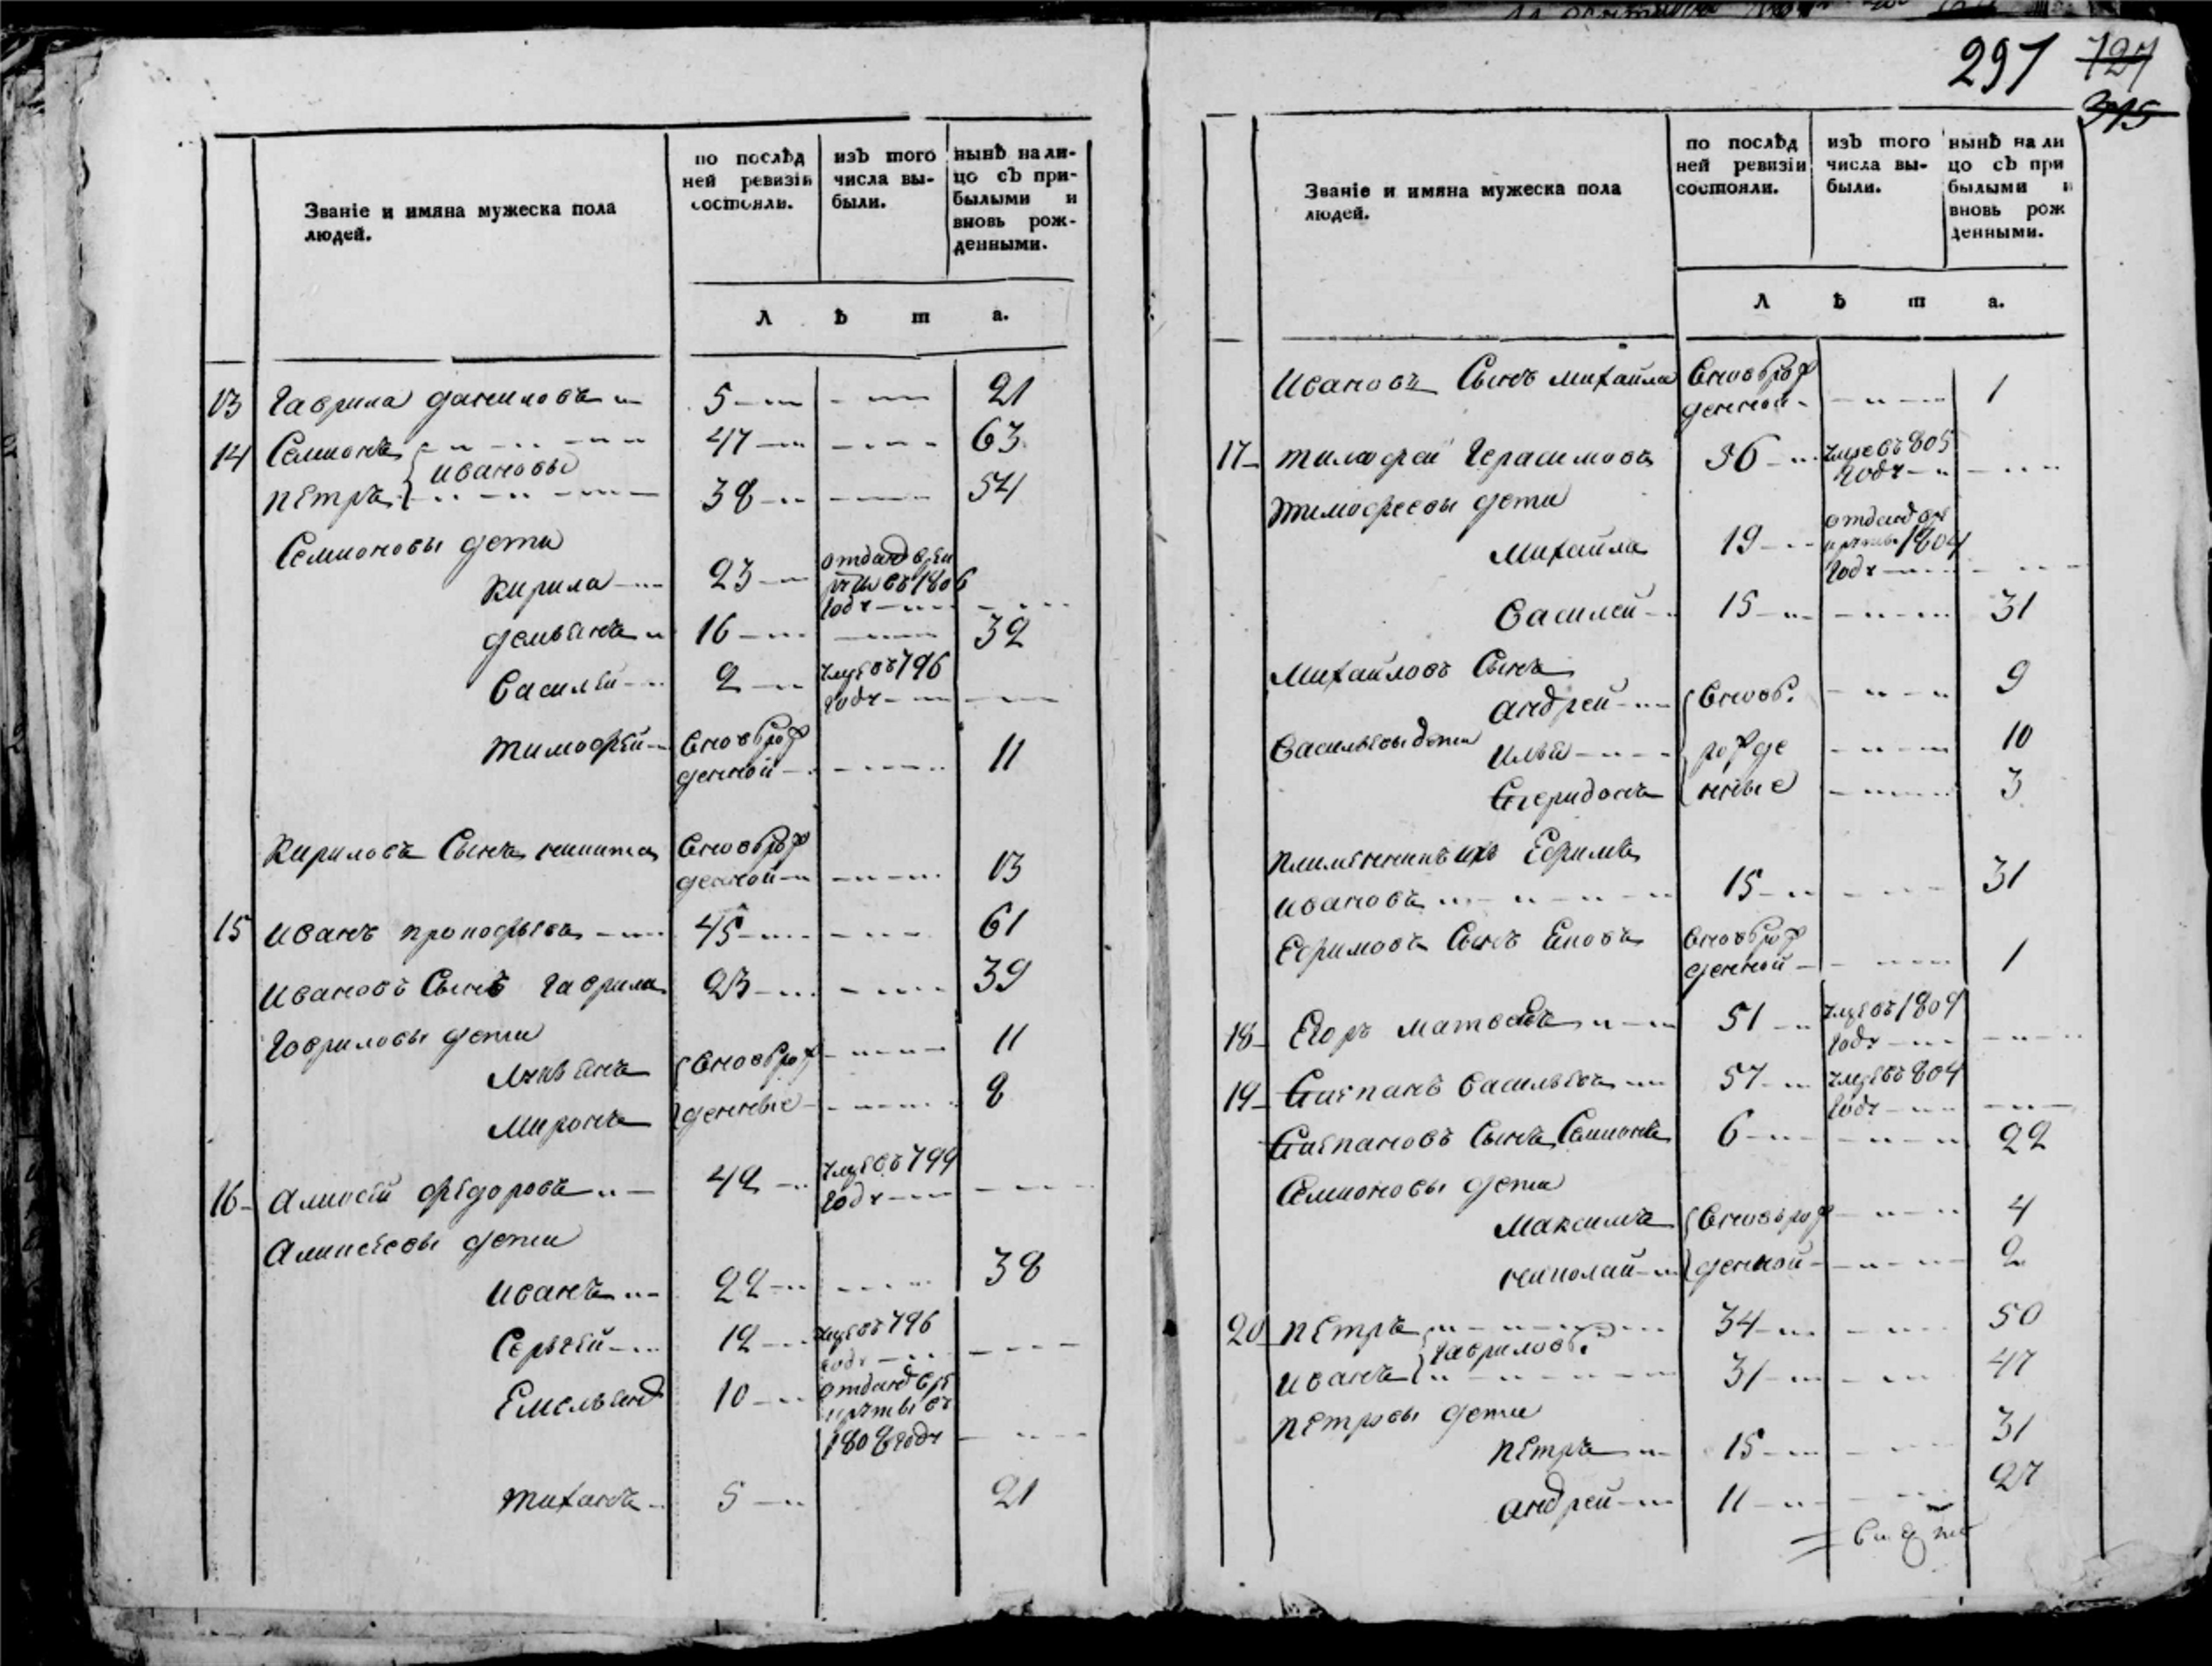 297
727
375
Званіе и имяна мужеска пола
людей.
по послѣд
ней ревизіи
состояли.
изъ того
числа вы-
были.
нынѣ на ли-
цо съ при-
былыми и
вновь рож-
денными.
Л ѣ т а.
13 Гаврила даниловъ 5 21
14 Семионъ 47 63
ивановы
пЕтръ 38 54
Семионовы дети
Кирила 23 отданд въ ре
круты въ 1806
году
демьянъ 16 32
Василей 2 умре въ 796
году
тимофей вновьрож
денной 11
Кириловъ Сынъ никита вновьрож
денной 13
15 иванъ прокофьевъ 45 61
ивановъ Сынъ Гаврила 23 39
Гавриловы дети
Лукьянъ вновьрож 11
Миронъ денные 8
16 алексей Федоровъ 42 умре въ 799
году
алексеевы дети
иванъ 22 38
Сергей 12 умре въ 796
году
Емельянъ 10 отданд в ре
круты въ
1808 году
тихонъ 5 21
Званіе и имяна мужеска пола
людей.
по послѣд
ней ревизіи
состояли.
изъ того
числа вы-
были.
нынѣ на ли
цо съ при
былыми и
вновь рож
денными.
Л ѣ т а.
ивановъ Сынъ михайла вновьрож
денной 1
17 тимофей Герасимовъ 56 умре въ 805
году
тимофеевы дети
михайла 19
круты 1804
году
Василей 15 31
михайловъ Сынъ
андрей вновь 9
Васильевы дети илья рожде 10
Спиридонъ нные 3
племенникъ ихъ Ефимъ
ивановъ 15 31
Ефимовъ Сынъ вновьрож
денной 1
18 Егоръ матвеевъ 51 умре въ 1809
году
19 Степанъ Васильевъ 57 умре въ 804
году
Степановъ Сынъ Семионъ 6 22
Семионовы дети
максимъ вновьрож 4
николай денной 2
20 пЕтръ 34 50
Гаврилов.
иванъ 31 47
пЕтровы дети
пЕтръ 15 31
андрей 11 27